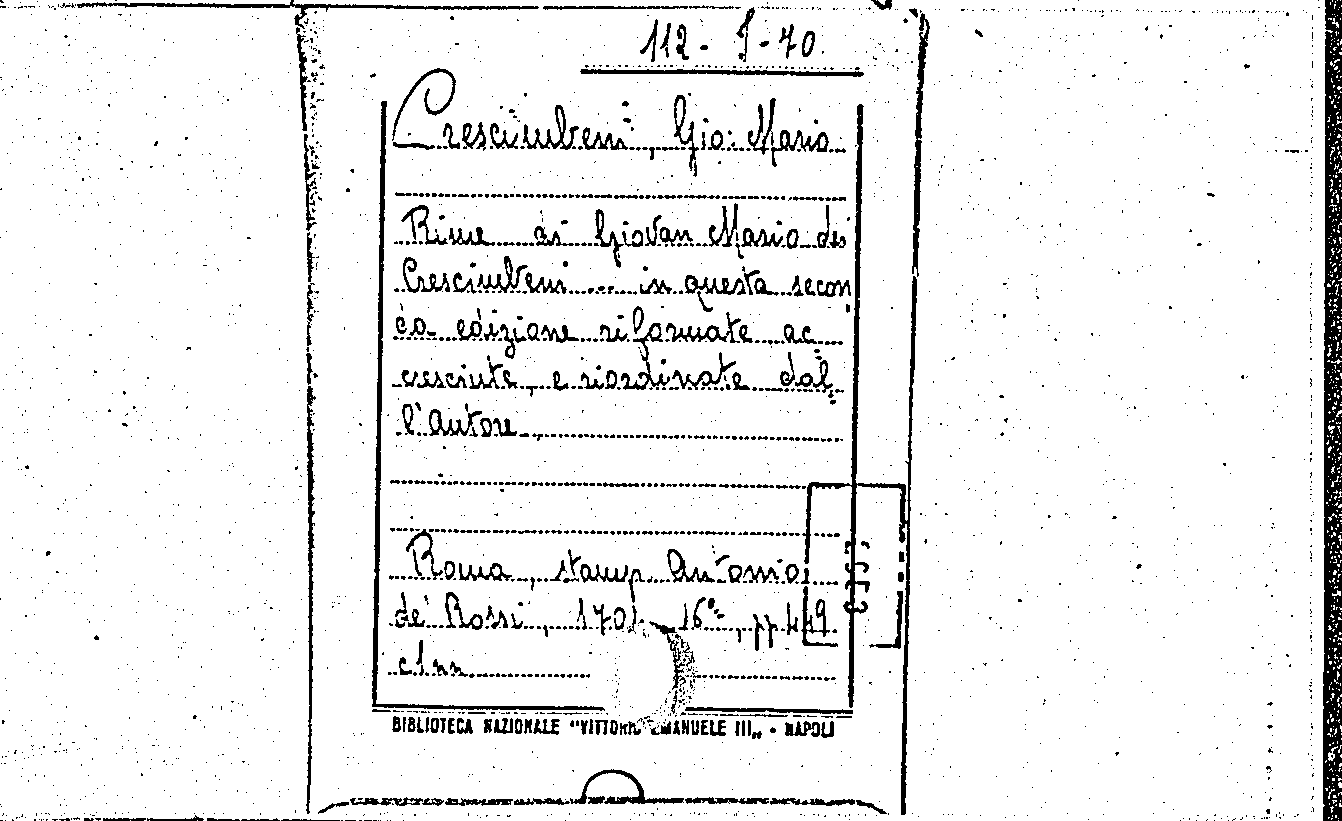 112 - J - 70
Crescimbeni, Gio: Mario
Rime di Giovan Mario dei
Crescimbeni ... in questa secon
da edizione riformate ac=
cresciute, e riordinate dal=
l'Autore
Roma, stamp. Antonio
de' Rossi, 1704 16°, pp 449
c.1 nn
BIBLIOTECA NAZIONALE "VITTORIO EMANUELE III„ - NAPOLI